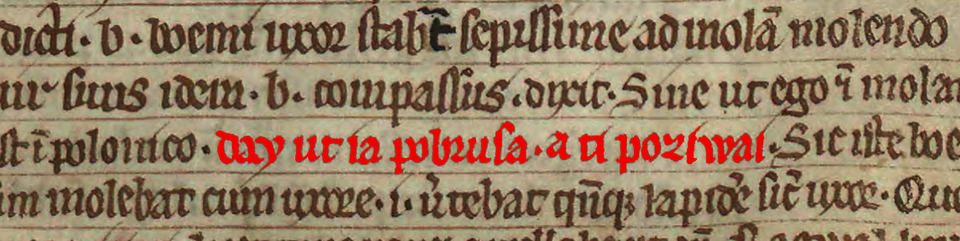 dicti · b · boemi uxor stabat sepissime ad molam molendo
uir suus idem · b · compassus · dixit · Sine ut ego i mola
st i polonico · day ut ia pobrusa · a ti poziwai · Sic iste boe
im molebat cum uxore · i · uertebat qunque lapidem sicut uxor · Quo